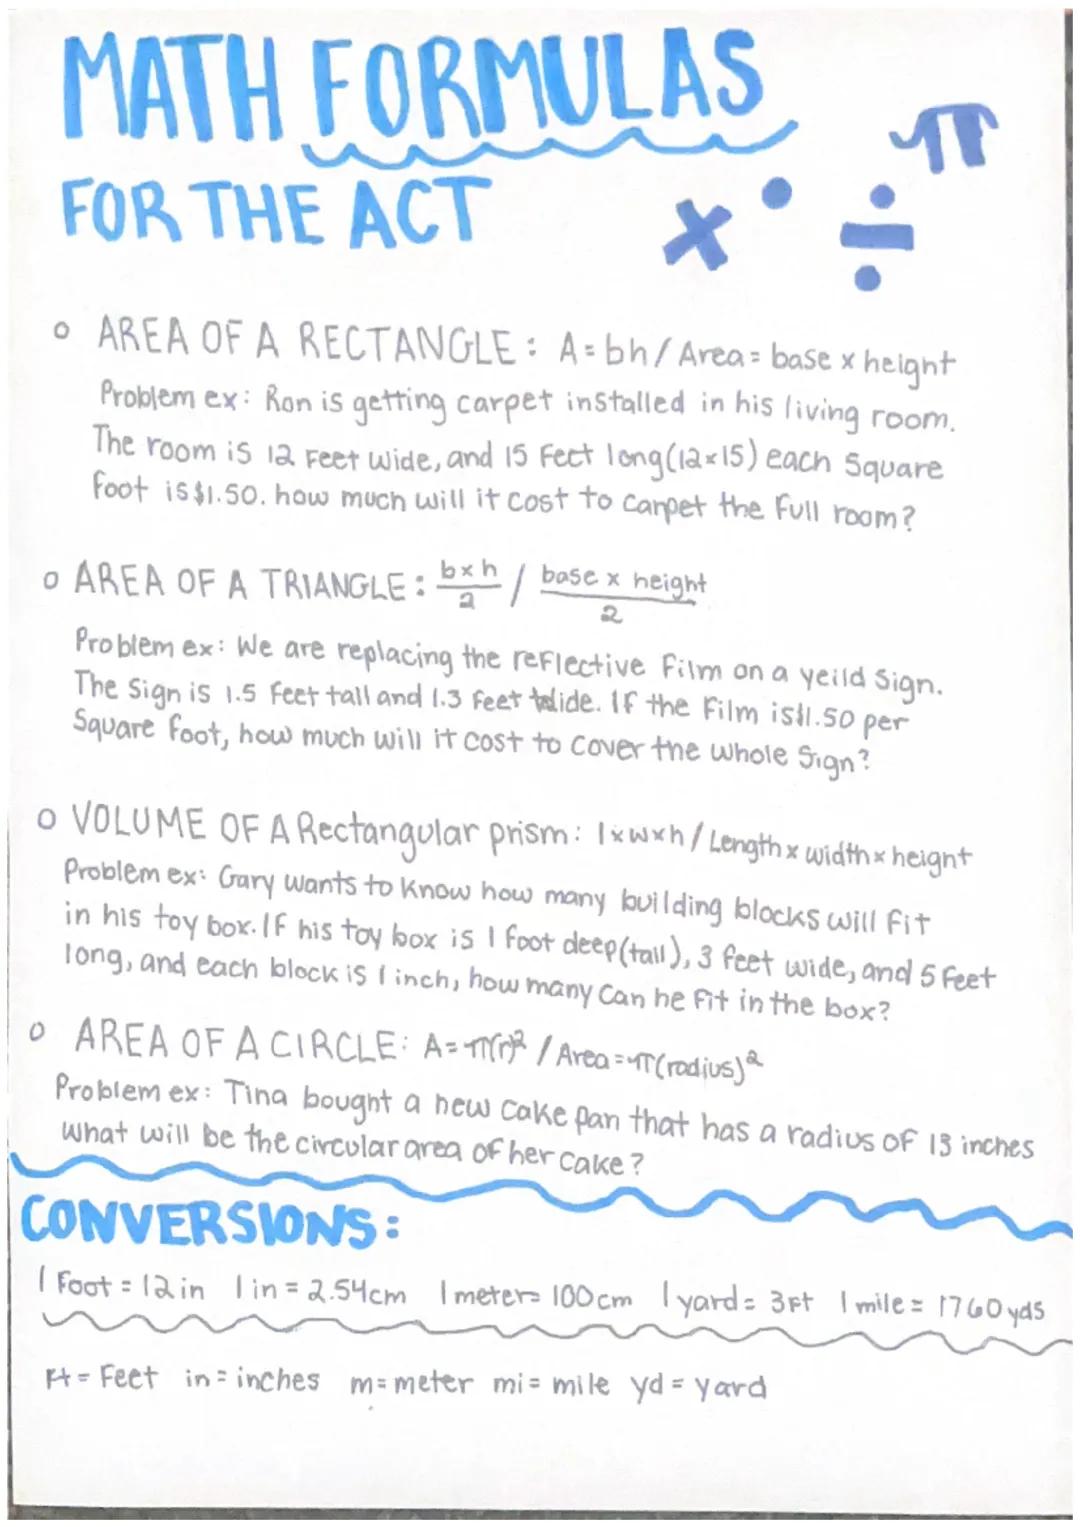 MATH FORMULAS
FOR THE ACT
× • ÷ π
o AREA OF A RECTANGLE: A=bh/Area=base x height
Problem ex: Ron is getting carpet installed in his living room.
The room is 12 Feet wide, and 15 Feet long(12x15) each Square
foot is $1.50. how much will it cost to carpet the full room?
o AREA OF A TRIANGLE: bxh/2 / base x height/2
Problem ex: We are replacing the reflective Film on a yeild Sign.
The Sign is 1.5 feet tall and 1.3 feet wide. If the Film is $1.50 per
Square foot, how much will it cost to cover the whole Sign?
o VOLUME OF A Rectangular prism: lxwxh/Length x width x height
Problem ex: Gary wants to know how many building blocks will fit
in his toy box. If his toy box is 1 foot deep(tall), 3 feet wide, and 5 feet
long, and each block is 1 inch, how many can he fit in the box?
o AREA OF A CIRCLE: A=π(r)² / Area=π(radius)²
Problem ex: Tina bought a new cake pan that has a radius of 13 inches
what will be the circular area of her cake?
CONVERSIONS:
1 Foot = 12in 1in = 2.54cm 1meter= 100cm 1yard= 3Ft 1mile= 1760yds
Ft = Feet in = inches m=meter mi= mile yd = yard